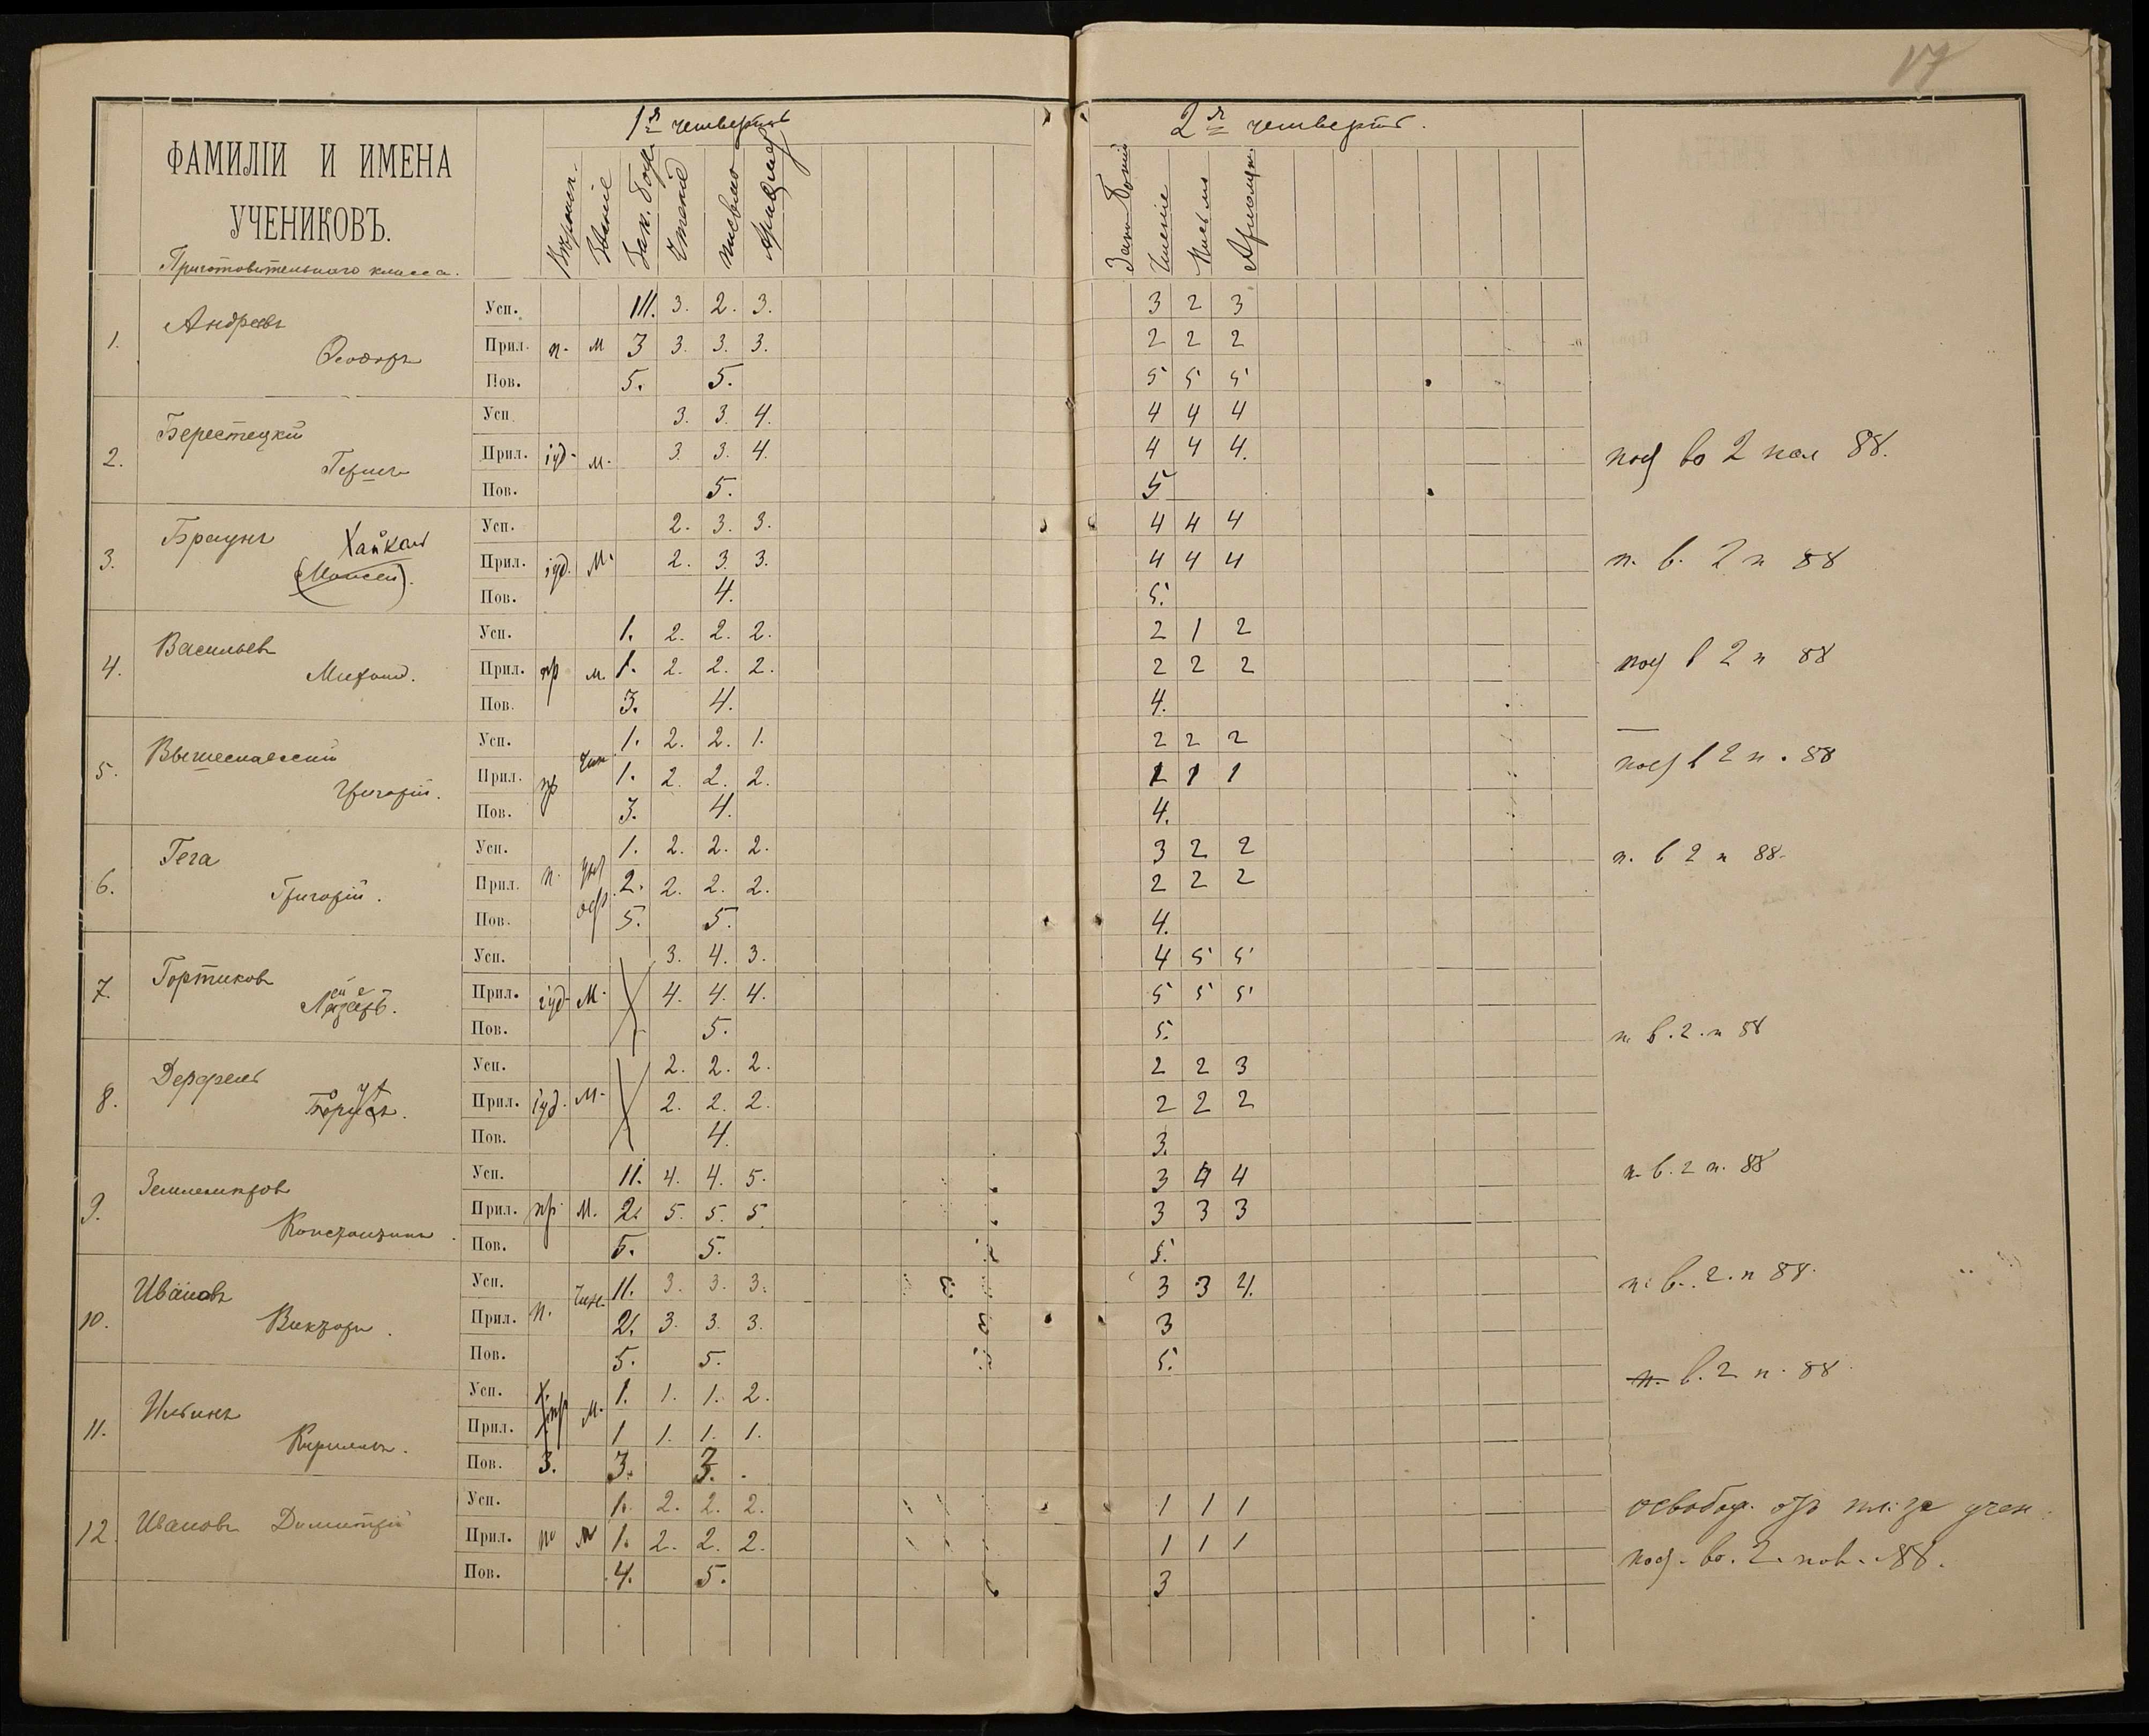 17
1я четверть
2я четверть.
ФАМИЛІИ И ИМЕНА
УЧЕНИКОВЪ.
Приготовительнаго класса.
Званіе Зак. Бож. Чтеніе письмо
Чтеніе Письмо
1. Андреевъ Ѳеодоръ
Усп. III. 3. 2. 3. 3 2 3
Прил. п. м 3 3. 3. 3. 2 2 2
Пов. 5. 5. 5 5 5
2. Берестецкій Гершъ
Усп 3. 3. 4. 4 4 4
Прил. іуд. м. 3. 3. 4. 4 4 4.
Пов. 5. 5
во 2 пол 88.
3. Браунъ Хайкель (Моисей).
Усп. 2. 3. 3. 4 4 4
Прил. іуд. М. 2. 3. 3. 4 4 4
Пов. 4. 5.
п. в. 2 п 88
4. Васильевъ Михаил.
Усп. 1. 2. 2. 2. 2 1 2
Прил. пр м. 1. 2. 2. 2. 2 2 2
Пов. 3. 4. 4.
в 2 п 88
5. Вышеславскій Григорій.
Усп. 1. 2. 2. 1. 2 2 2
Прил. пр чин 1. 2. 2. 2. 1 1 1
Пов. 3. 4. 4.
в 2 п. 88
6. Гега Григорій.
Усп. 1. 2. 2. 2. 3 2 2
Прил. п. 2. 2. 2. 2. 2 2 2
Пов. 5. 5. 4.
п. в 2 п 88.
7. Гортиковъ Лазарь.
Усп. 3. 4. 3. 4 5 5
Прил. іуд. М. 4. 4. 4. 5 5 5
Пов. 5. 5.
п. в. 2. п 88
8. Дерфель Борухъ.
Усп. 2. 2. 2. 2 2 3
Прил. іуд. М. 2. 2. 2. 2 2 2
Пов. 4. 3.
п. в. 2 п. 88
9. Землемѣровъ Константинъ.
Усп. II. 4. 4. 5. 3 4 4
Прил. пр. М. 2. 5. 5. 5. 3 3 3
Пов. 5. 5. 5.
п. в. 2. п 88.
10. Ивановъ Викторъ.
Усп. II. 3. 3. 3. 3 3 4.
Прил. п. Чин. 2. 3. 3. 3. 3
Пов. 5. 5. 5.
п. в. 2 п. 88
11. Ильинъ Кириллъ.
Усп. 1. 1. 1. 2.
Прил. пр М. 1 1. 1. 1.
Пов. 3. 3. 3.
12. Ивановъ Димитрій
Усп. 1. 2. 2. 2. 1 1 1
Прил. п м 1. 2. 2. 2. 1 1 1
Пов. 4. 5. 3
освобод. отъ пл. за учен.
во. 2. пол. 88.